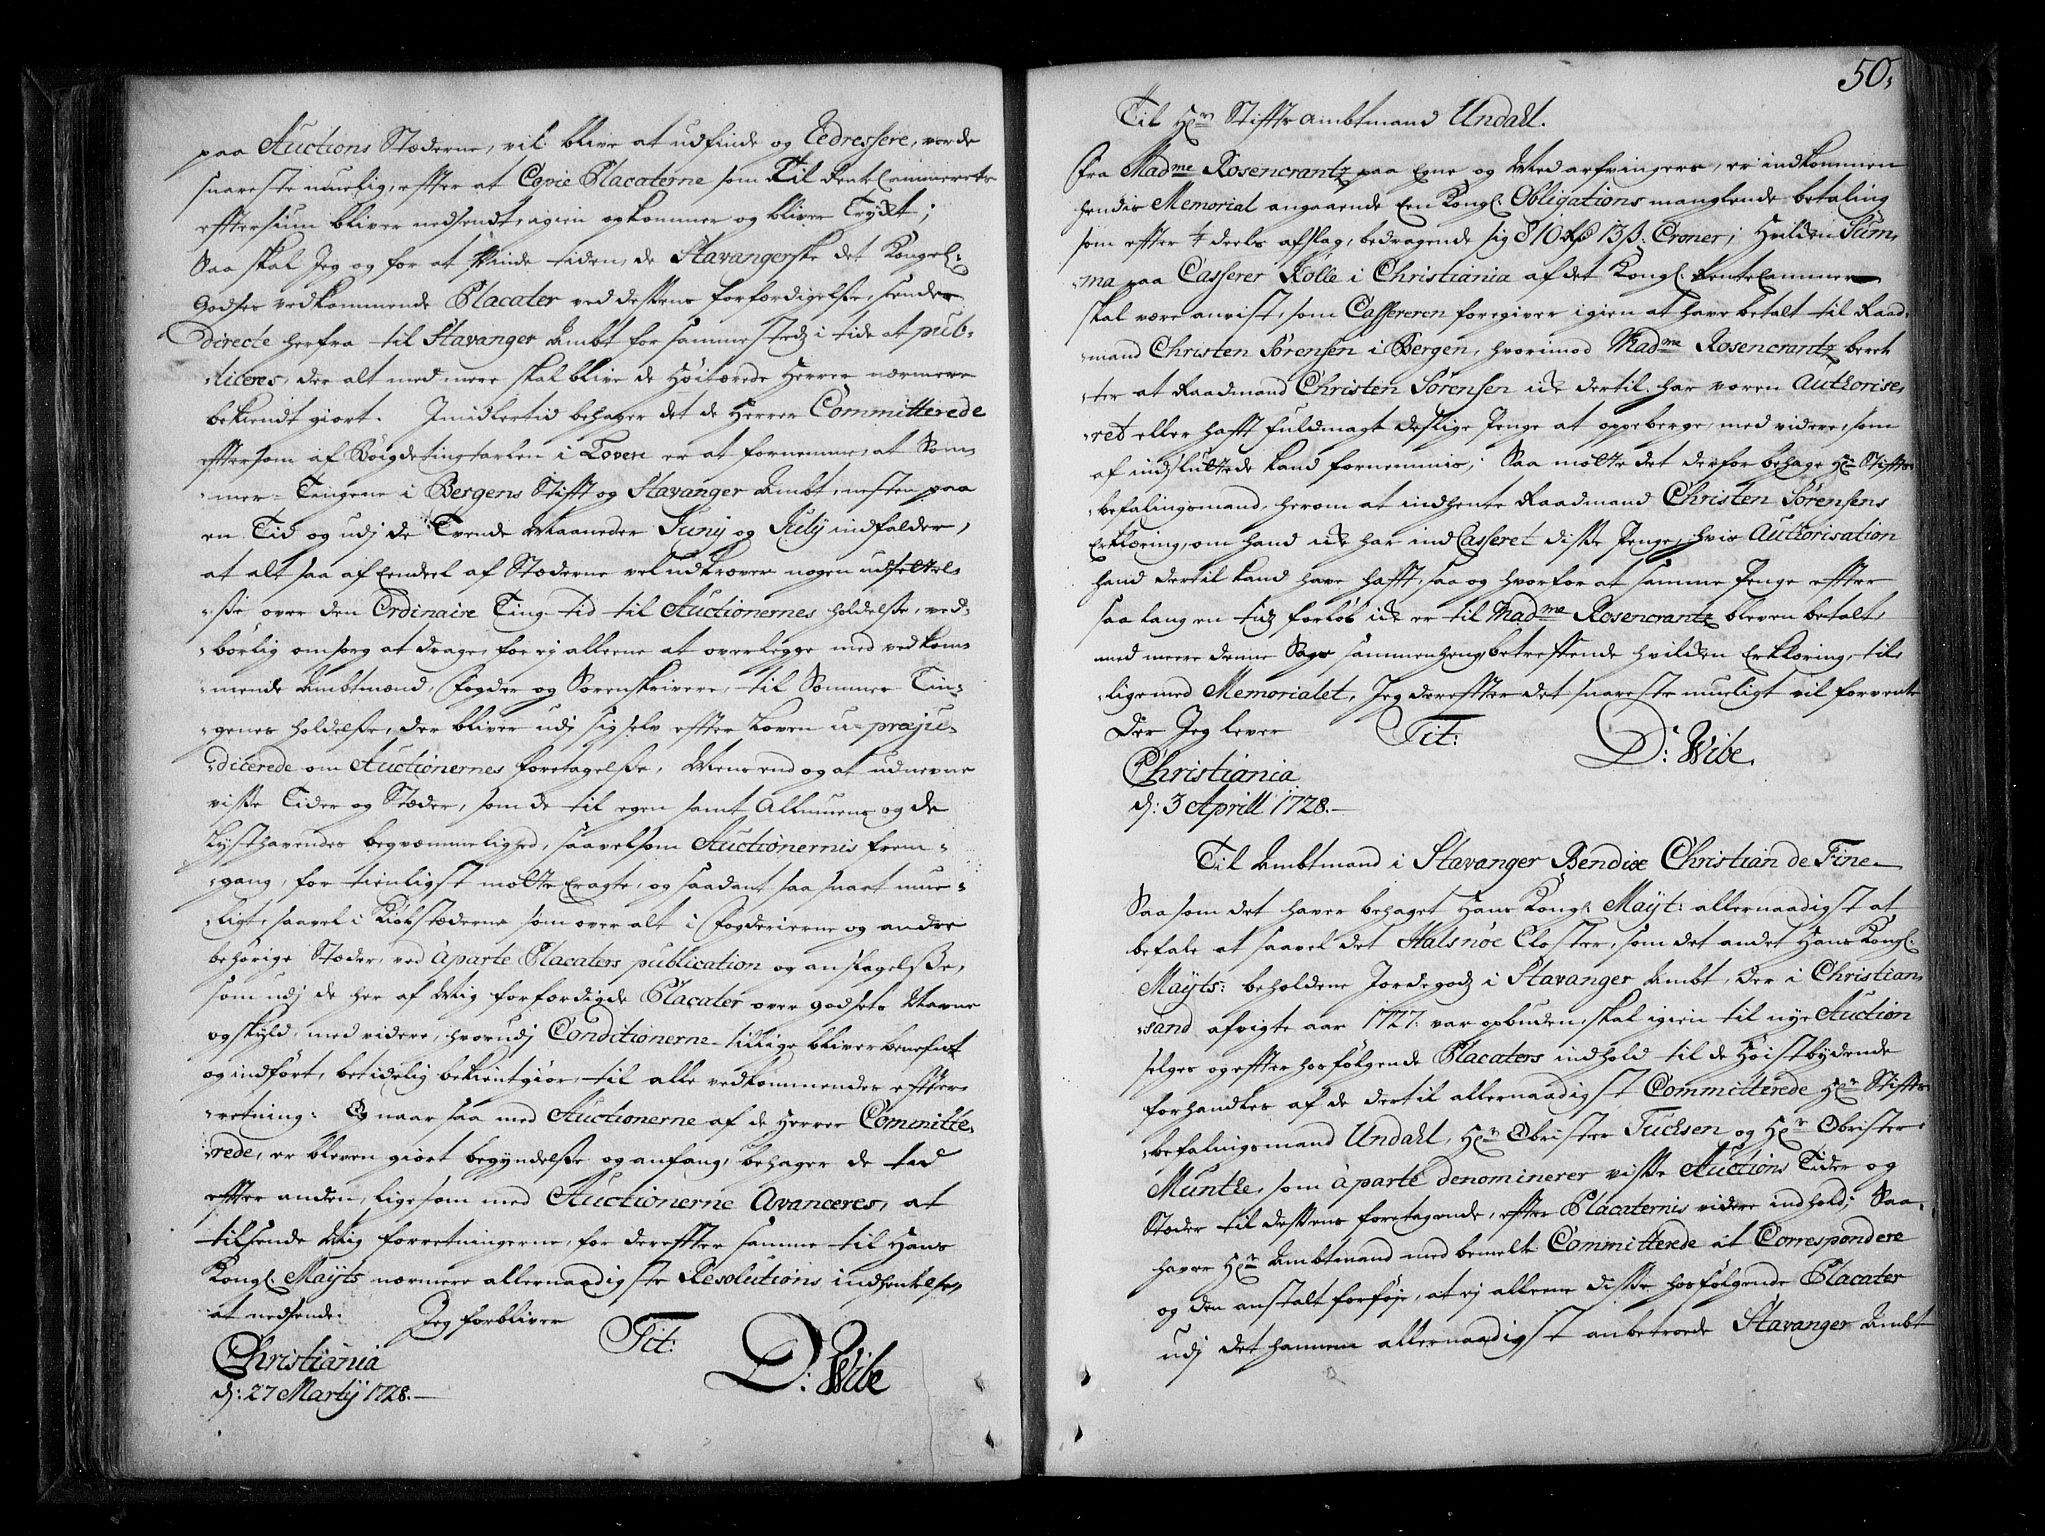 paa Auctions Stæderne, vil blive at udfinde og Redressere, vorde
snareste muelig, efter at Copie Placaterne som til Rente Cammerets
efftersiun bliver nedsendt, igien opkommer og bliver Trykt;
Saa skal Jeg og for at Vinde tiden, de Stavangerske det Kongel:
Godses vedkommende Placater ved dessens forfærdigelsse, sender
directe herfra til Stavanger Ambt for sammestedz i tide at pub-
-liceres, der alt med mere skal blive de Høitærede Herrer nærmere
bekiendt giort. Imidlertid behager det de Herrer Committerede
efftersom af Bøigdetingtarlen i Loven er at fornemme, at Som-
-mer-Tingene i Bergens Stifft og Stavanger Ambt, nesten paa
en Tid og udj de Tvende Maaneder Junj og July indfalder,
at alt saa af Eendeel af Stæderne vel udkræver nogen udsettel-
-sse over den Ordinaire Ting-tid til Auctionernes holdelsse, ved-
-børlig omsorg at drage, for ej alleene at overlegge med vedkom-
-mende Ambtmænd, Fogder og Sorenskrivere, til Sommer Tin-
-genes holdelsse, der bliver udj sig selv effter Loven u-præju-
-dicerede om Auctionernes foretagelsse, Mens end og at udnevne
visse Tider og Stæder, som de til egen samt Allmuens og de
Lysthavendes begvemmelighed, saavelsom Auctionernis frem-
-gang, for tienligst motte Eragte, og saadant saa snart mue-
-ligt, saavel i Kiøbstæderne som over alt i Fogderierne og andre
behørige Stæder, ved aparte Placaters publication og anslagelsse,
som udj de her af Mig forfærdigde Placater over godsets Navne
og skyld, med videre, hvorudj Conditionerne tillige bliver benefnt
og indført, betidelig bekientgiør, til alle vedkommendes effter-
-retning: Og naar saa med Auctionerne af de Herrer Committe-
-rede, er bleven giort begyndelsse og anfang, behager de tid
effter anden, ligesom med Auctionerne Avanceres, at
tilsende Mig forretningerne, for dereffter samme til Hans
Kongl: Mayts nærmere allernaadigste Resolutions indhentelse,
at nedsende. Jeg forbliver Tit:
Christiania D: Wibe
d: 27 Martij 1728.
50.
Til Hrn Stiffts ambtmand Undahl.
Fra Madme Rosencrantz paa Egne og Medarfvingers, er indkommen
hendes Memorial angaaende Een Kongl: Obligations manglende betaling
som effter ¼ deels afslag, bedragende sig 810 rdr 13 ß: Croner; Hvilden Sum-
-ma paa Casserer Rolle i Christiania af det Kongl: Rente Cammer
skal være anvist, som Cassereren foregiver igien at have betalt til Raad-
-mand Christen Sørensen i Bergen, hvorimod Madme Rosencrantz beret-
-ter at Raadmand Christen Sørensen icke dertil har voren Authorise-
-ret eller hafft fuldmagt deslige Penge at oppeberge, med videre, som
af indsluttede kand fornemmis; Saa motte det derfor behage Hrn Stiffts-
-befalingsmand, herom at indhente Raadmand Christen Sørensens
Erklæring, om hand icke har indCasseret disse Penge, hvis Authorisation
hand dertil kand have hafft, saa og hvorfor at samme Penge effter
saa lang en tidz forløb icke er til Madme Rosencrantz bleven betalt,
med meere denne Sags sammenheng betreffende hvilden Erklæring, til-
-ligemed Memorialet, Jeg dereffter det snareste mueligt vil forvente
Der Jeg lever Tit: D: Wibe.
Christiania
d: 3 Aprill 1728.
Til Ambtmand i Stavanger Bendix Christian de Fine
Saasom det haver behaget Hans Kongl: Mayt: allernaadigst at
befale at saavel det Halsnøe Closter, som det andet Hans Kongl:
Mayts: beholdene Jordegodz i Stavanger Ambt, der i Christian-
-sand afvigte aar 1727. var opbuden, skal igien til nye Auction
selges og effter hosfølgende Placaters indhold til de Høistbydende
forhandles af de dertil allernaadigst Committerede Hrn Stiffts-
-befalingsmand Undahl, Hrn Obrister Tuchsen og Hrn Obrister
Munthe, som aparte denominerer visse Auctions Tider og
Stæder til dessens foretagende, effter Placaternis videre indhold; Saa
haver Hrn Ambtmand med bemelte Committerede at Correspondere
og den anstalt forføje, at ej alleene disse hosfølgende Placater
udj det hannem allernaadigst anbetroede Stavanger Ambt